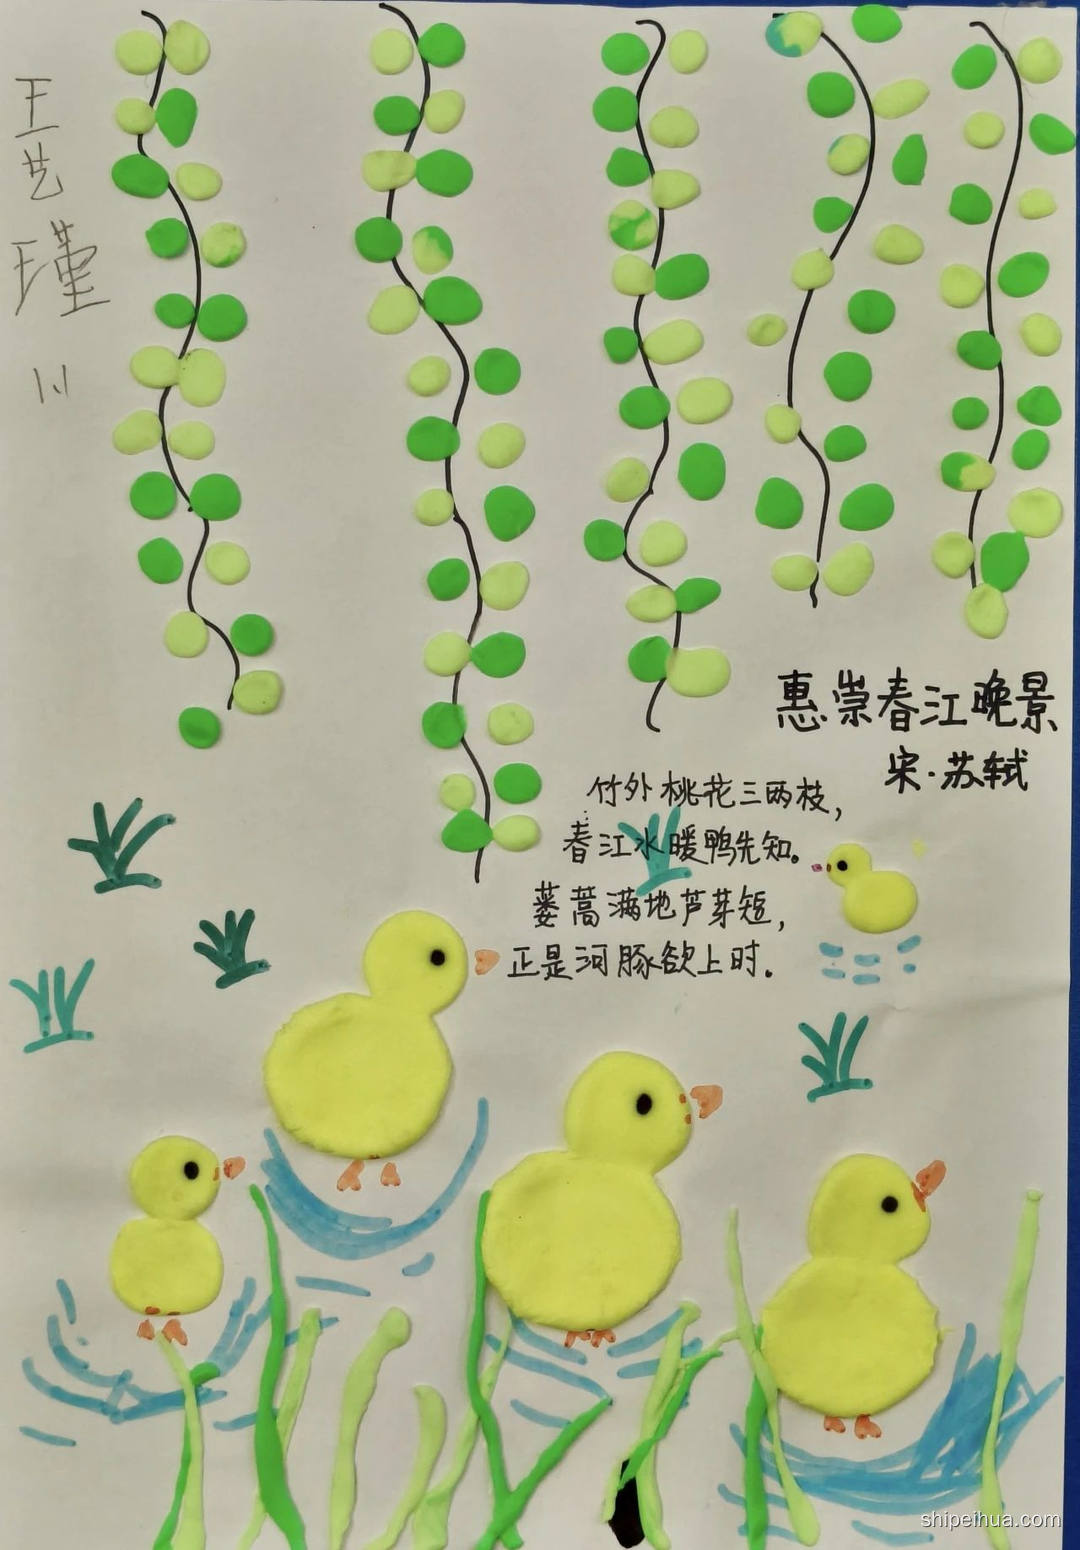 王艺瑾
1.1
惠崇春江晚景
宋·苏轼
竹外桃花三两枝，
春江水暖鸭先知。
蒌蒿满地芦芽短，
正是河豚欲上时.
shipeihua.com